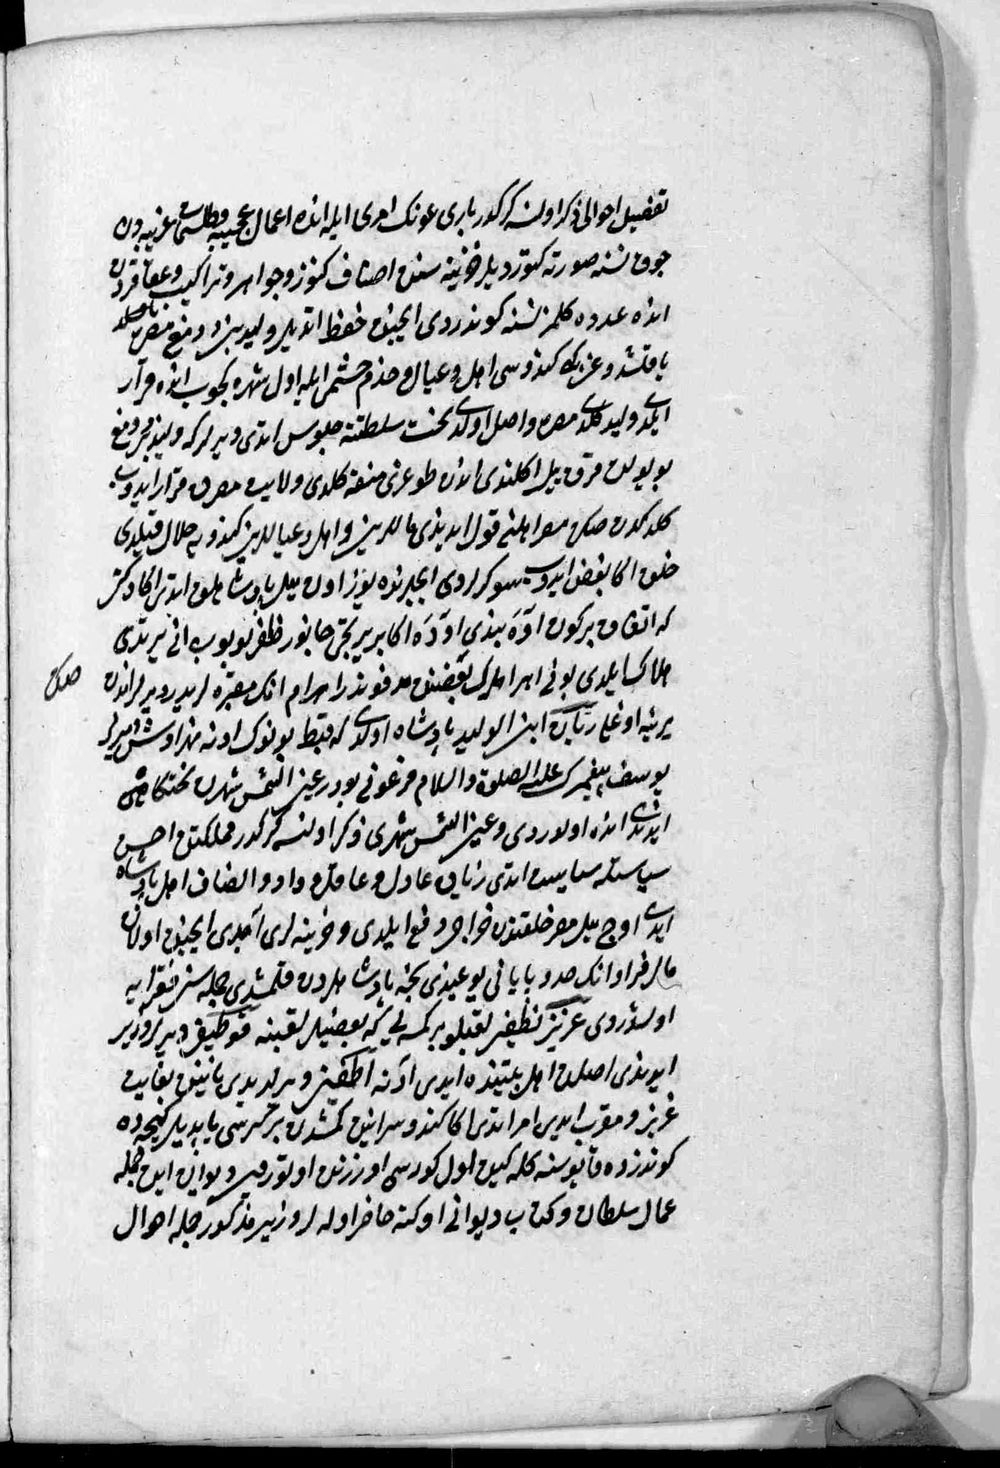 تفصيل احوالی ذکر اولنسه کرکدر باری عونک امری ایله انده اعمال عجیبه و طلسمات غریبه دن
چوق نسنه صورته کتوردیلر خزینه سندن اصناف کنوز و جواهر و تراکیب و عقاقیردن
انده عدده کلمز نسنه کوندردی ایچنده حفظ اتدیلر ولیدبن دومغ مصر
یاقلشدوغیکه کندوسی اهل و عیال و خدم حشم ایله اول شهره کچوب انده قرار
ایلدی ولید کلدی مصره واصل اولدی تخت سلطنته جلوس اتدی دیرلر که ولید بن دومغ
بو یولدن قرق ییل اکلندی اندن طوغری منفه کلدی ولایت مصرده قرار ایدوب
کلدکدن صکره مصر اهلنی قول ایدیندی ماللرین و اهل و عیاللرین کندویه حلال قیلدی
خلق اکا بغض ایدوب سوکرلردی ایچلرنده یوز اون ییل پادشاهلق اتدی اکا دکین
که اتفاق برکون آوه بندی آوده اکا بر یرتجی جانور ظفر بولوب انی یرتدی
هلاک ایلدی بونی اهراملرک بعضنده مدفوندر اهرام انک مقبره لریدر دیرلر اندن صکره
یرینه اوغلی ریان ابن الولید پادشاه اولدی که قبط بونوک ادنه نهراوش دیرلر
یوسف پیغمبرک علیه الصلوة والسلام فرعونی بودر عین الشمس شهرن تختکاه
ایدندی انده اولوردی و عین الشمس شهری ذکر اولنسه کرکدر مملکتی احسن
سیاستله سیاست اتدی ریان عادل و عاقل و داد و انصاف اهل پادشاه
ایدی اوچ ییل مصر خلقندن خراجی دفع ایلدی و خزینه لری آچدی ایچنده اولان
مالر فراوانک حد و پایانی یوغیدی نجه پادشاهلردن قلمشدی جمله سن فقرایه
اولشدردی عزیز نظیفر لقبلو بر کمسه یی که بعضیلر لقبنه قوطیفر دیرلر وزیر
ایدندی اصلدن اهل بیتنده ایدی ادنه اطفین دیرلر ایدی یانینده بغایت
عزیز و مقرب ایدی امر اتدی اکا کندو سرایندن کمشدن بر کرسی یاپدیلر کیجه ده
کوندزده قاپوسنه کله کیدن اول کورسی اوزرندن اولتوروب دیوان ایدن جمله
عمال سلطان و کتاب دیوانی اوکنه حاضر اوله لر وزیر مذکور جمله احوال